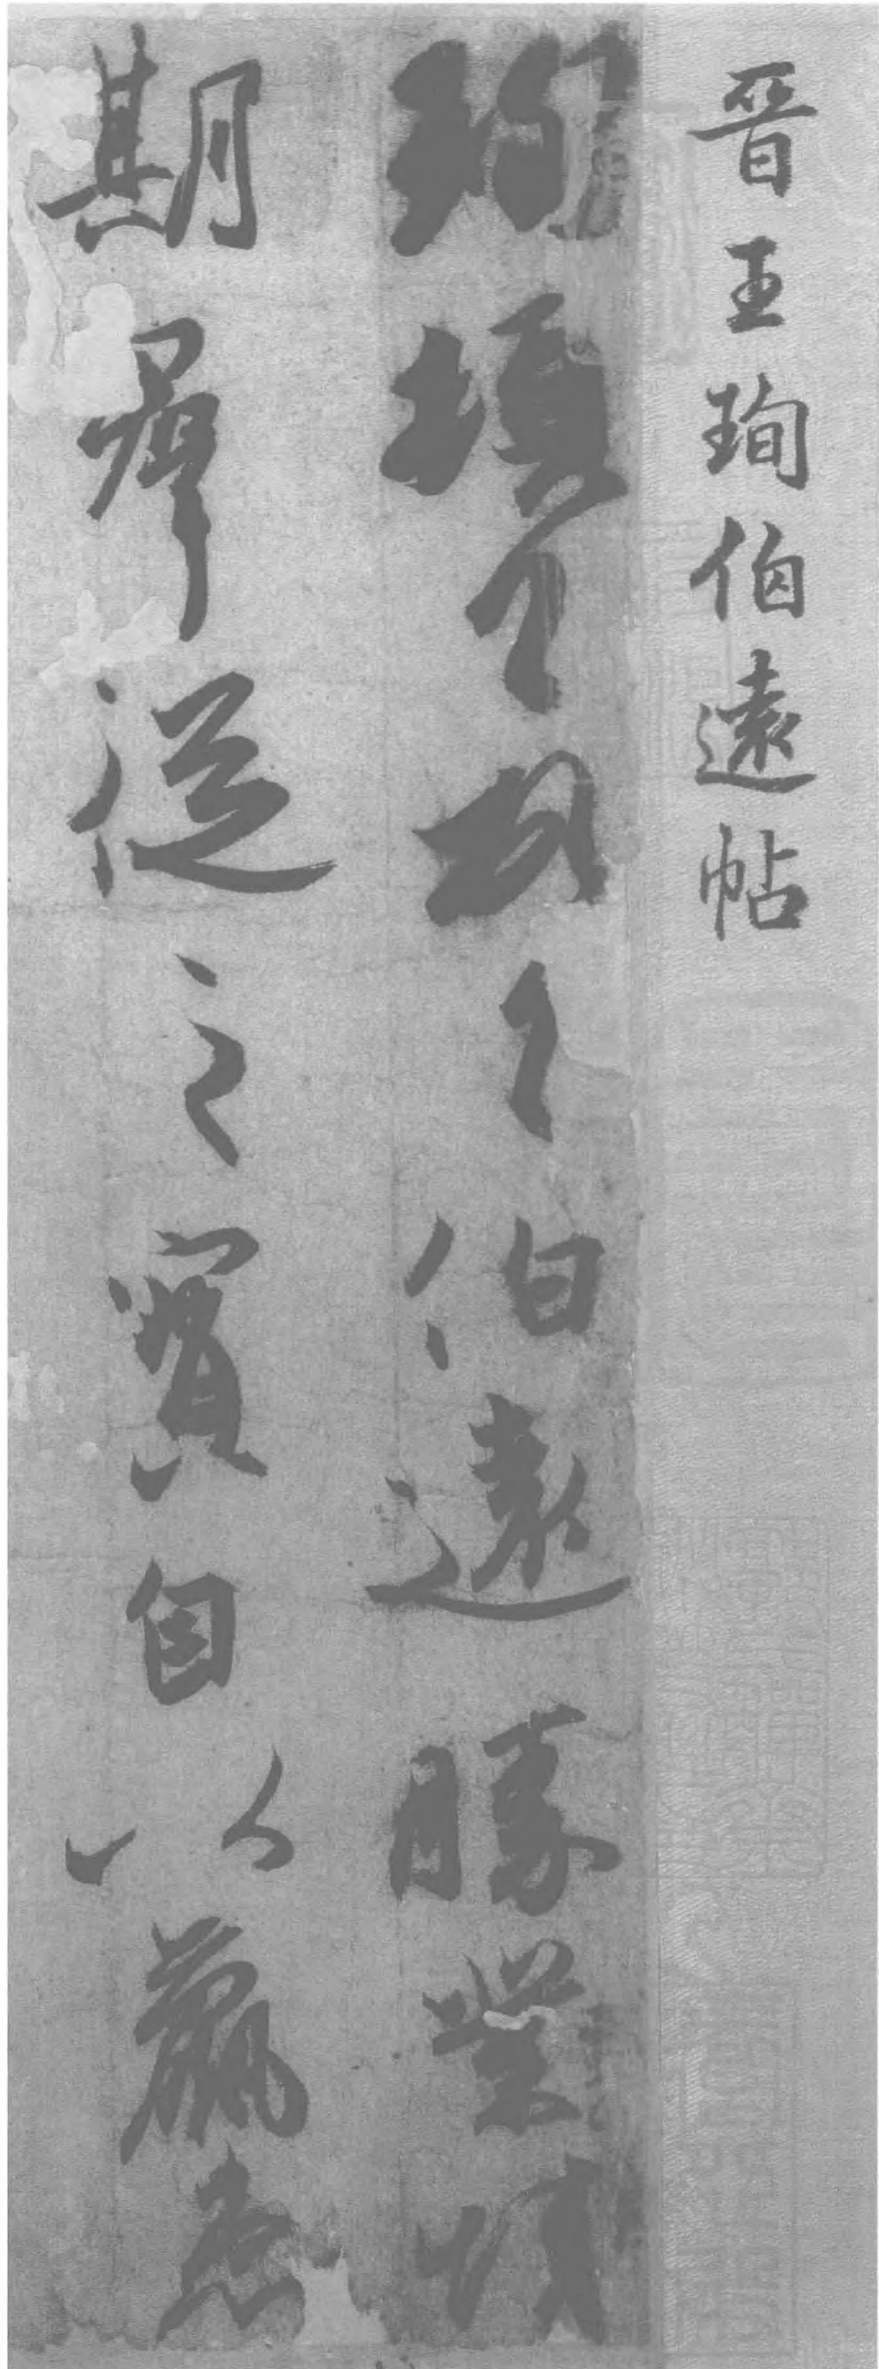 晉王珣伯遠帖
珣頓首頓首伯遠勝業情
期羣從之寶自以羸患